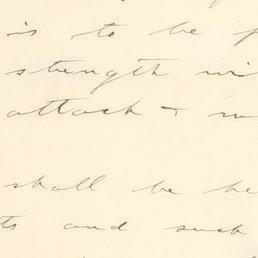 is to be
strength
attack +
shall be he
ts and such